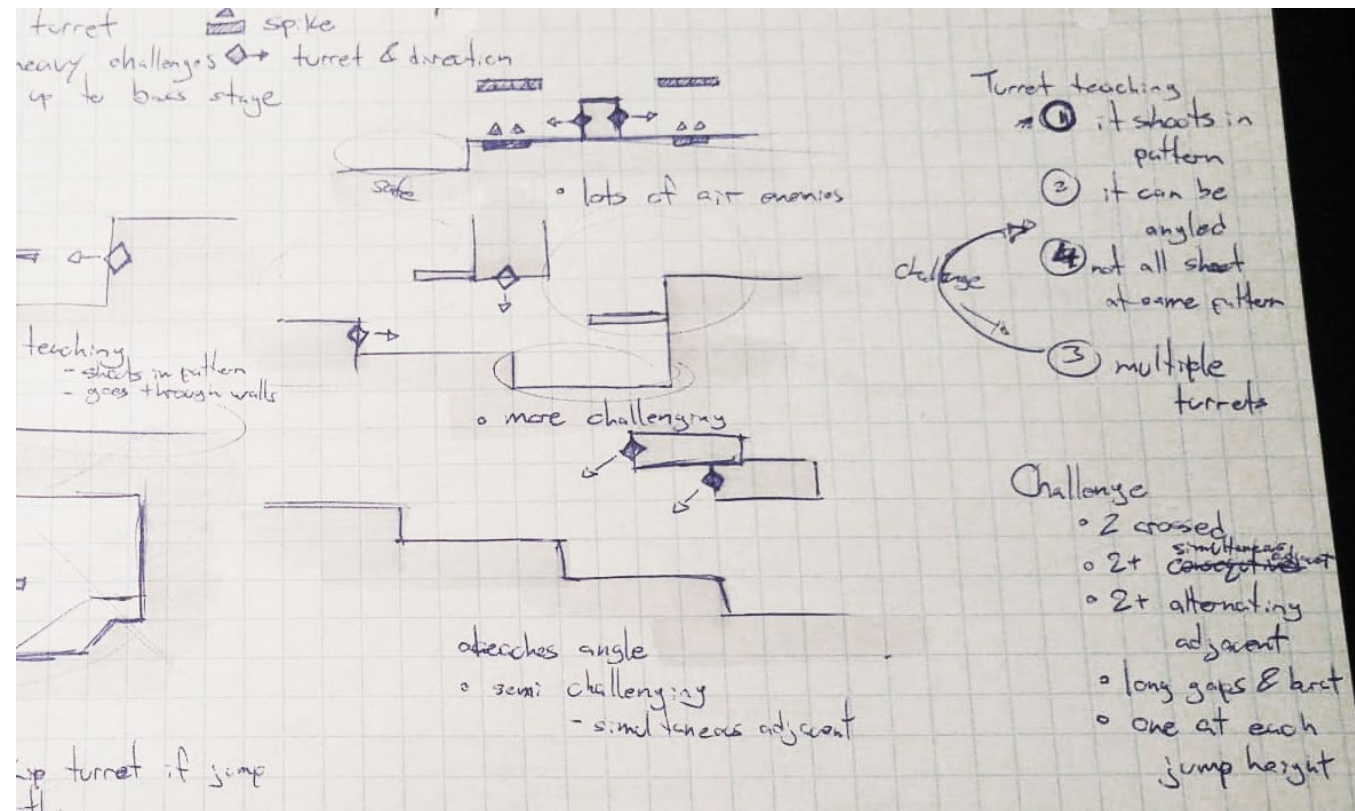 turret
spike
heavy challenges
turret & direction
up to boss stage
safe
• lots of air enemies
teaching
- shoots in pattern
- goes through walls
• more challenging
• teaches angle
• semi challenging
- simultaneous adjacent
turret if jump
Turret teaching
1 it shoots in
pattern
2 it can be
angled
4 not all shoot
at same pattern
Challenge
3 multiple
turrets
Challenge
• 2 crossed
• 2+ simultaneous adjacent
• 2+ alternating
adjacent
• long gaps & burst
• one at each
jump height